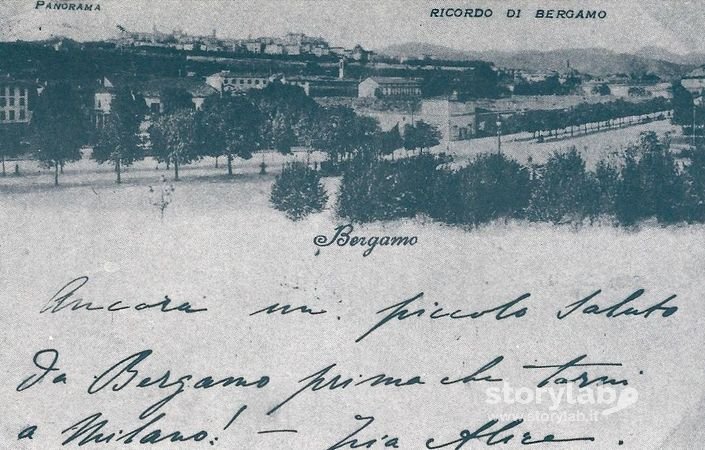 PANORAMA
RICORDO DI BERGAMO
Bergamo
Ancora un piccolo saluto
da Bergamo prima che torni
a Milano! — Zia Alice.
storylab
www.storylab.it